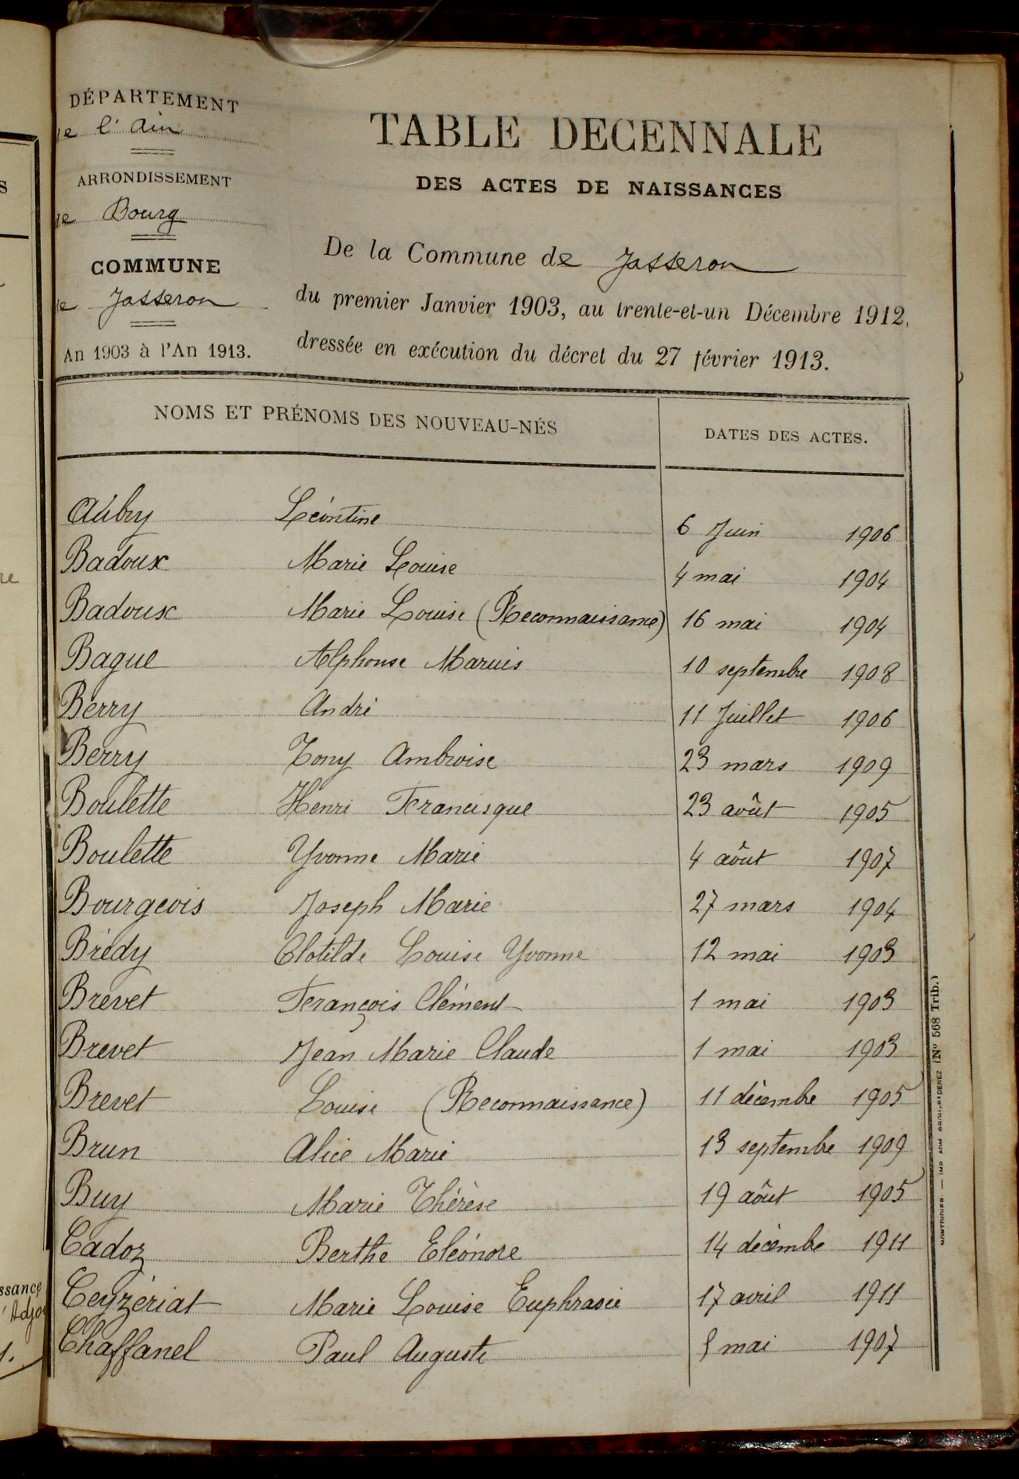 DÉPARTEMENT
de l'Ain
ARRONDISSEMENT
de Bourg
COMMUNE
de Jasseron
An 1903 à l'An 1913.
TABLE DECENNALE
DES ACTES DE NAISSANCES
De la Commune de Jasseron
du premier Janvier 1903, au trente-et-un Décembre 1912,
dressée en exécution du décret du 27 février 1913.
NOMS ET PRÉNOMS DES NOUVEAU-NÉS DATES DES ACTES.
Aubry Léontine 6 Juin 1906
Badoux Marie Louise 4 mai 1904
Badoux Marie Louise (Reconnaissance) 16 mai 1904
Bague Alphonse Marius 10 septembre 1908
Berry André 11 Juillet 1906
Berry Tony Ambroise 23 mars 1909
Boulette Henri Francisque 23 août 1905
Boulette Yvonne Marie 4 août 1907
Bourgeois Joseph Marie 27 mars 1904
Brédy Clotilde Louise Yvonne 12 mai 1903
Brevet François Clément 1 mai 1903
Brevet Jean Marie Claude 1 mai 1903
Brevet Louise (Reconnaissance) 11 décembre 1905
Brun Alice Marie 13 septembre 1909
Buy Marie Thérèse 19 août 1905
Cadoz Berthe Eléonore 14 décembre 1911
Ceyzériat Marie Louise Euphrasie 17 avril 1911
Chaffanel Paul Auguste mai 1907
(No 568 Trib.)